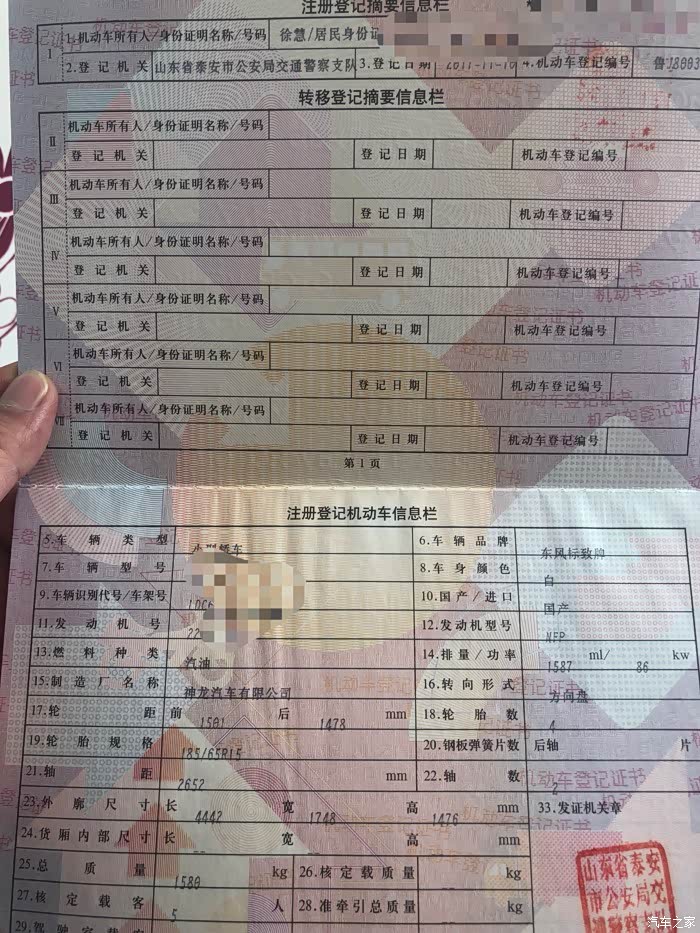 注册登记摘要信息栏
1.机动车所有人/身份证明名称/号码 徐慧/居民身份证
I 2.登记机关 山东省泰安市公安局交通警察支队 3.登记日期 4.机动车登记编号
转移登记摘要信息栏
II 机动车所有人/身份证明名称/号码
登记机关 登记日期 机动车登记编号
III 机动车所有人/身份证明名称/号码
登记机关 登记日期 机动车登记编号
IV 机动车所有人/身份证明名称/号码
登记机关 登记日期 机动车登记编号
V 机动车所有人/身份证明名称/号码
登记机关 登记日期 机动车登记编号
VI 机动车所有人/身份证明名称/号码
登记机关 登记日期 机动车登记编号
VII 机动车所有人/身份证明名称/号码
登记机关 登记日期 机动车登记编号
第1页
注册登记机动车信息栏
5.车辆类型 小型轿车 6.车辆品牌 东风标致牌
7.车辆型号 8.车身颜色 白
9.车辆识别代号/车架号 10.国产/进口 国产
11.发动机号 12.发动机型号 NFP
13.燃料种类 汽油 14.排量/功率 1587 ml/ 86 kw
15.制造厂名称 神龙汽车有限公司 16.转向形式 方向盘
17.轮距 前 1501 后 1478 mm 18.轮胎数 4
19.轮胎规格 185/65R15 20.钢板弹簧片数 后轴 片
21.轴距 2652 mm 22.轴数 2
23.外廓尺寸 长 4442 宽 1748 高 1476 mm 33.发证机关章
24.货厢内部尺寸 长 宽 高 mm
25.总质量 1580 kg 26.核定载质量 kg
27.核定载客 5 人 28.准牵引总质量 kg
山东省泰安
市公安局交
通警察支
汽车之家